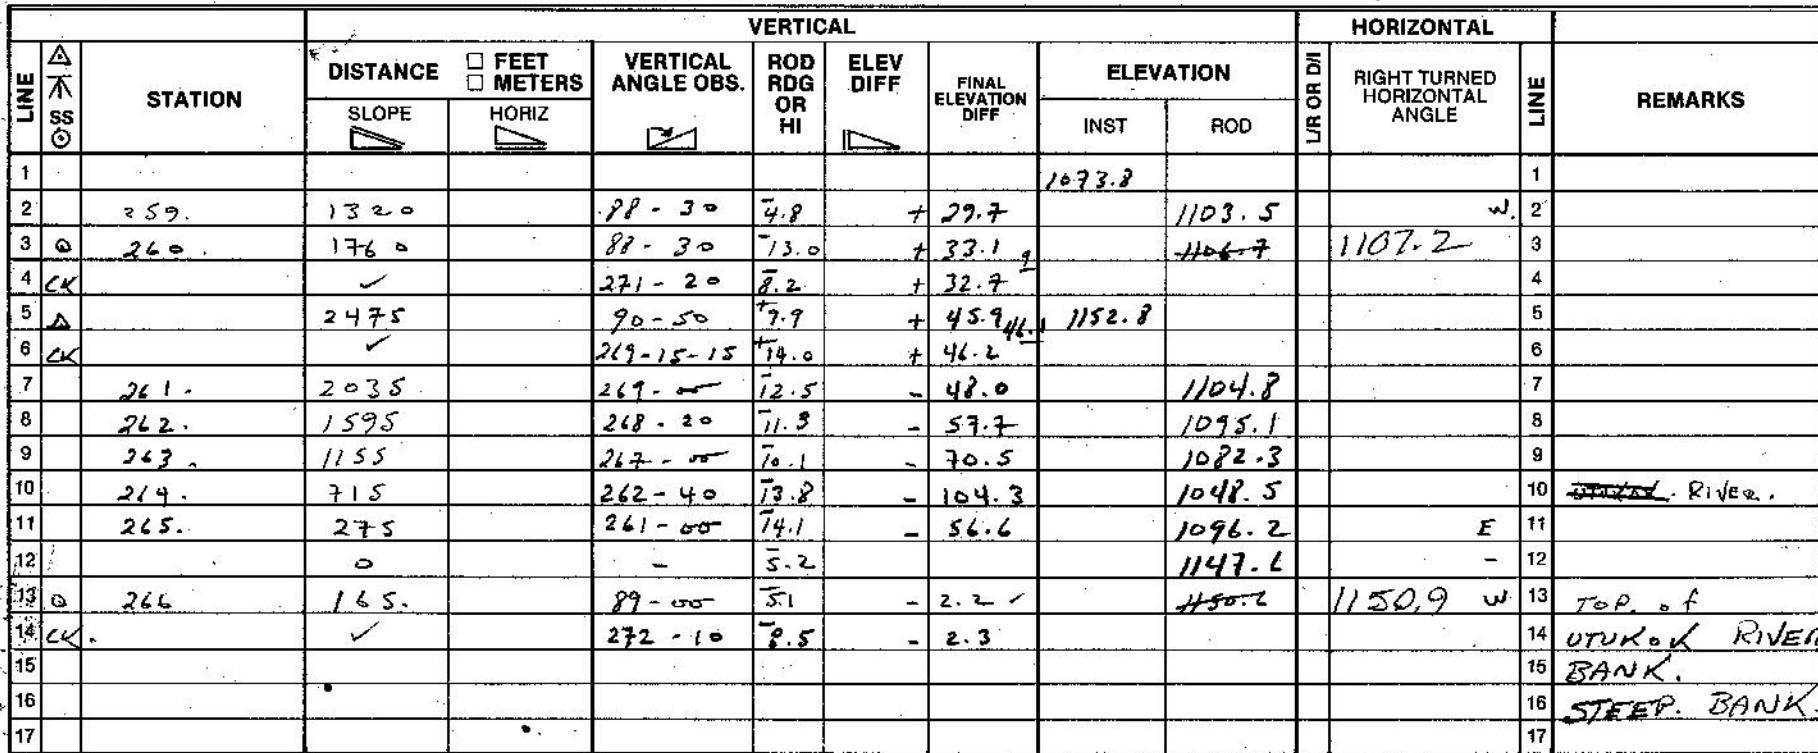 VERTICAL HORIZONTAL
LINE SS STATION DISTANCE □ FEET □ METERS SLOPE HORIZ VERTICAL ANGLE OBS. ROD RDG OR HI ELEV DIFF FINAL ELEVATION DIFF ELEVATION INST ROD L/R OR D/I RIGHT TURNED HORIZONTAL ANGLE LINE REMARKS
1 1073.8 1
2 259. 1320 88-30 -4.8 + 29.7 1103.5 W. 2
3 ⊙ 260. 1760 88-30 -13.0 + 33.1 9 1106.7 1107.2 3
4 CK ✓ 271-20 -8.2 + 32.7 4
5 △ 2475 90-50 +9.9 + 45.9 46.1 1152.8 5
6 CK ✓ 269-15-15 +14.0 + 46.2 6
7 261. 2035 269-00 -12.5 - 48.0 1104.8 7
8 262. 1595 268-20 -11.3 - 57.7 1095.1 8
9 263. 1155 267-00 -10.1 - 70.5 1082.3 9
10 264. 715 262-40 -13.8 - 104.3 1048.5 10 RIVER.
11 265. 275 261-00 -14.1 - 56.6 1096.2 E 11
12 0 - -5.2 1147.6 - 12
13 ⊙ 266 165. 89-00 -5.1 - 2.2 ✓ 1150.6 1150.9 W 13 TOP. of
14 CK. ✓ 272-10 -8.5 - 2.3 14 UTUKOK RIVER
15 15 BANK.
16 16 STEEP. BANK.
17 17